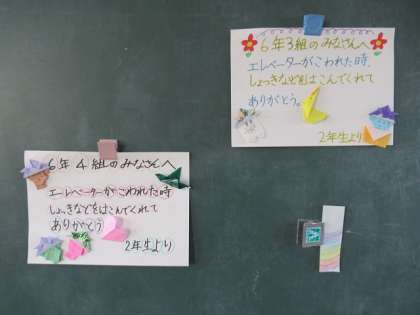 6年3組のみなさんへ
エレベーターがこわれた時、
しょっきなどをはこんでくれて
ありがとう。
2年生より
6年4組のみなさんへ
エレベーターがこわれた時
しょっきなどをはこんでくれて
ありがとう
2年生より